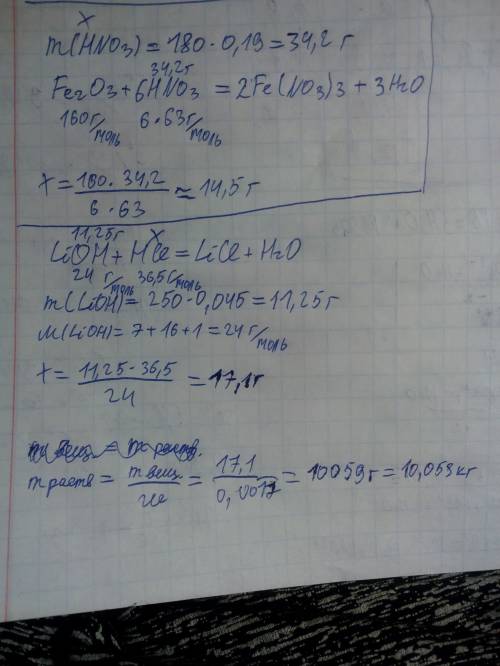 x
m(HNO3) = 180 · 0,19 = 34,2 г
34,2г
Fe2O3 + 6HNO3 = 2Fe(NO3)3 + 3H2O
160 г/моль 6·63 г/моль
x = 160 · 34,2 / 6 · 63 ≈ 14,5 г
11,25г x
LiOH + HCl = LiCl + H2O
24 г/моль 36,5 г/моль
m(LiOH) = 250 · 0,045 = 11,25 г
M(LiOH) = 7 + 16 + 1 = 24 г/моль
x = 11,25 · 36,5 / 24 = 17,1 г
m раств = m вещ. / w = 17,1 / 0,0017 = 10059 г = 10,059 кг